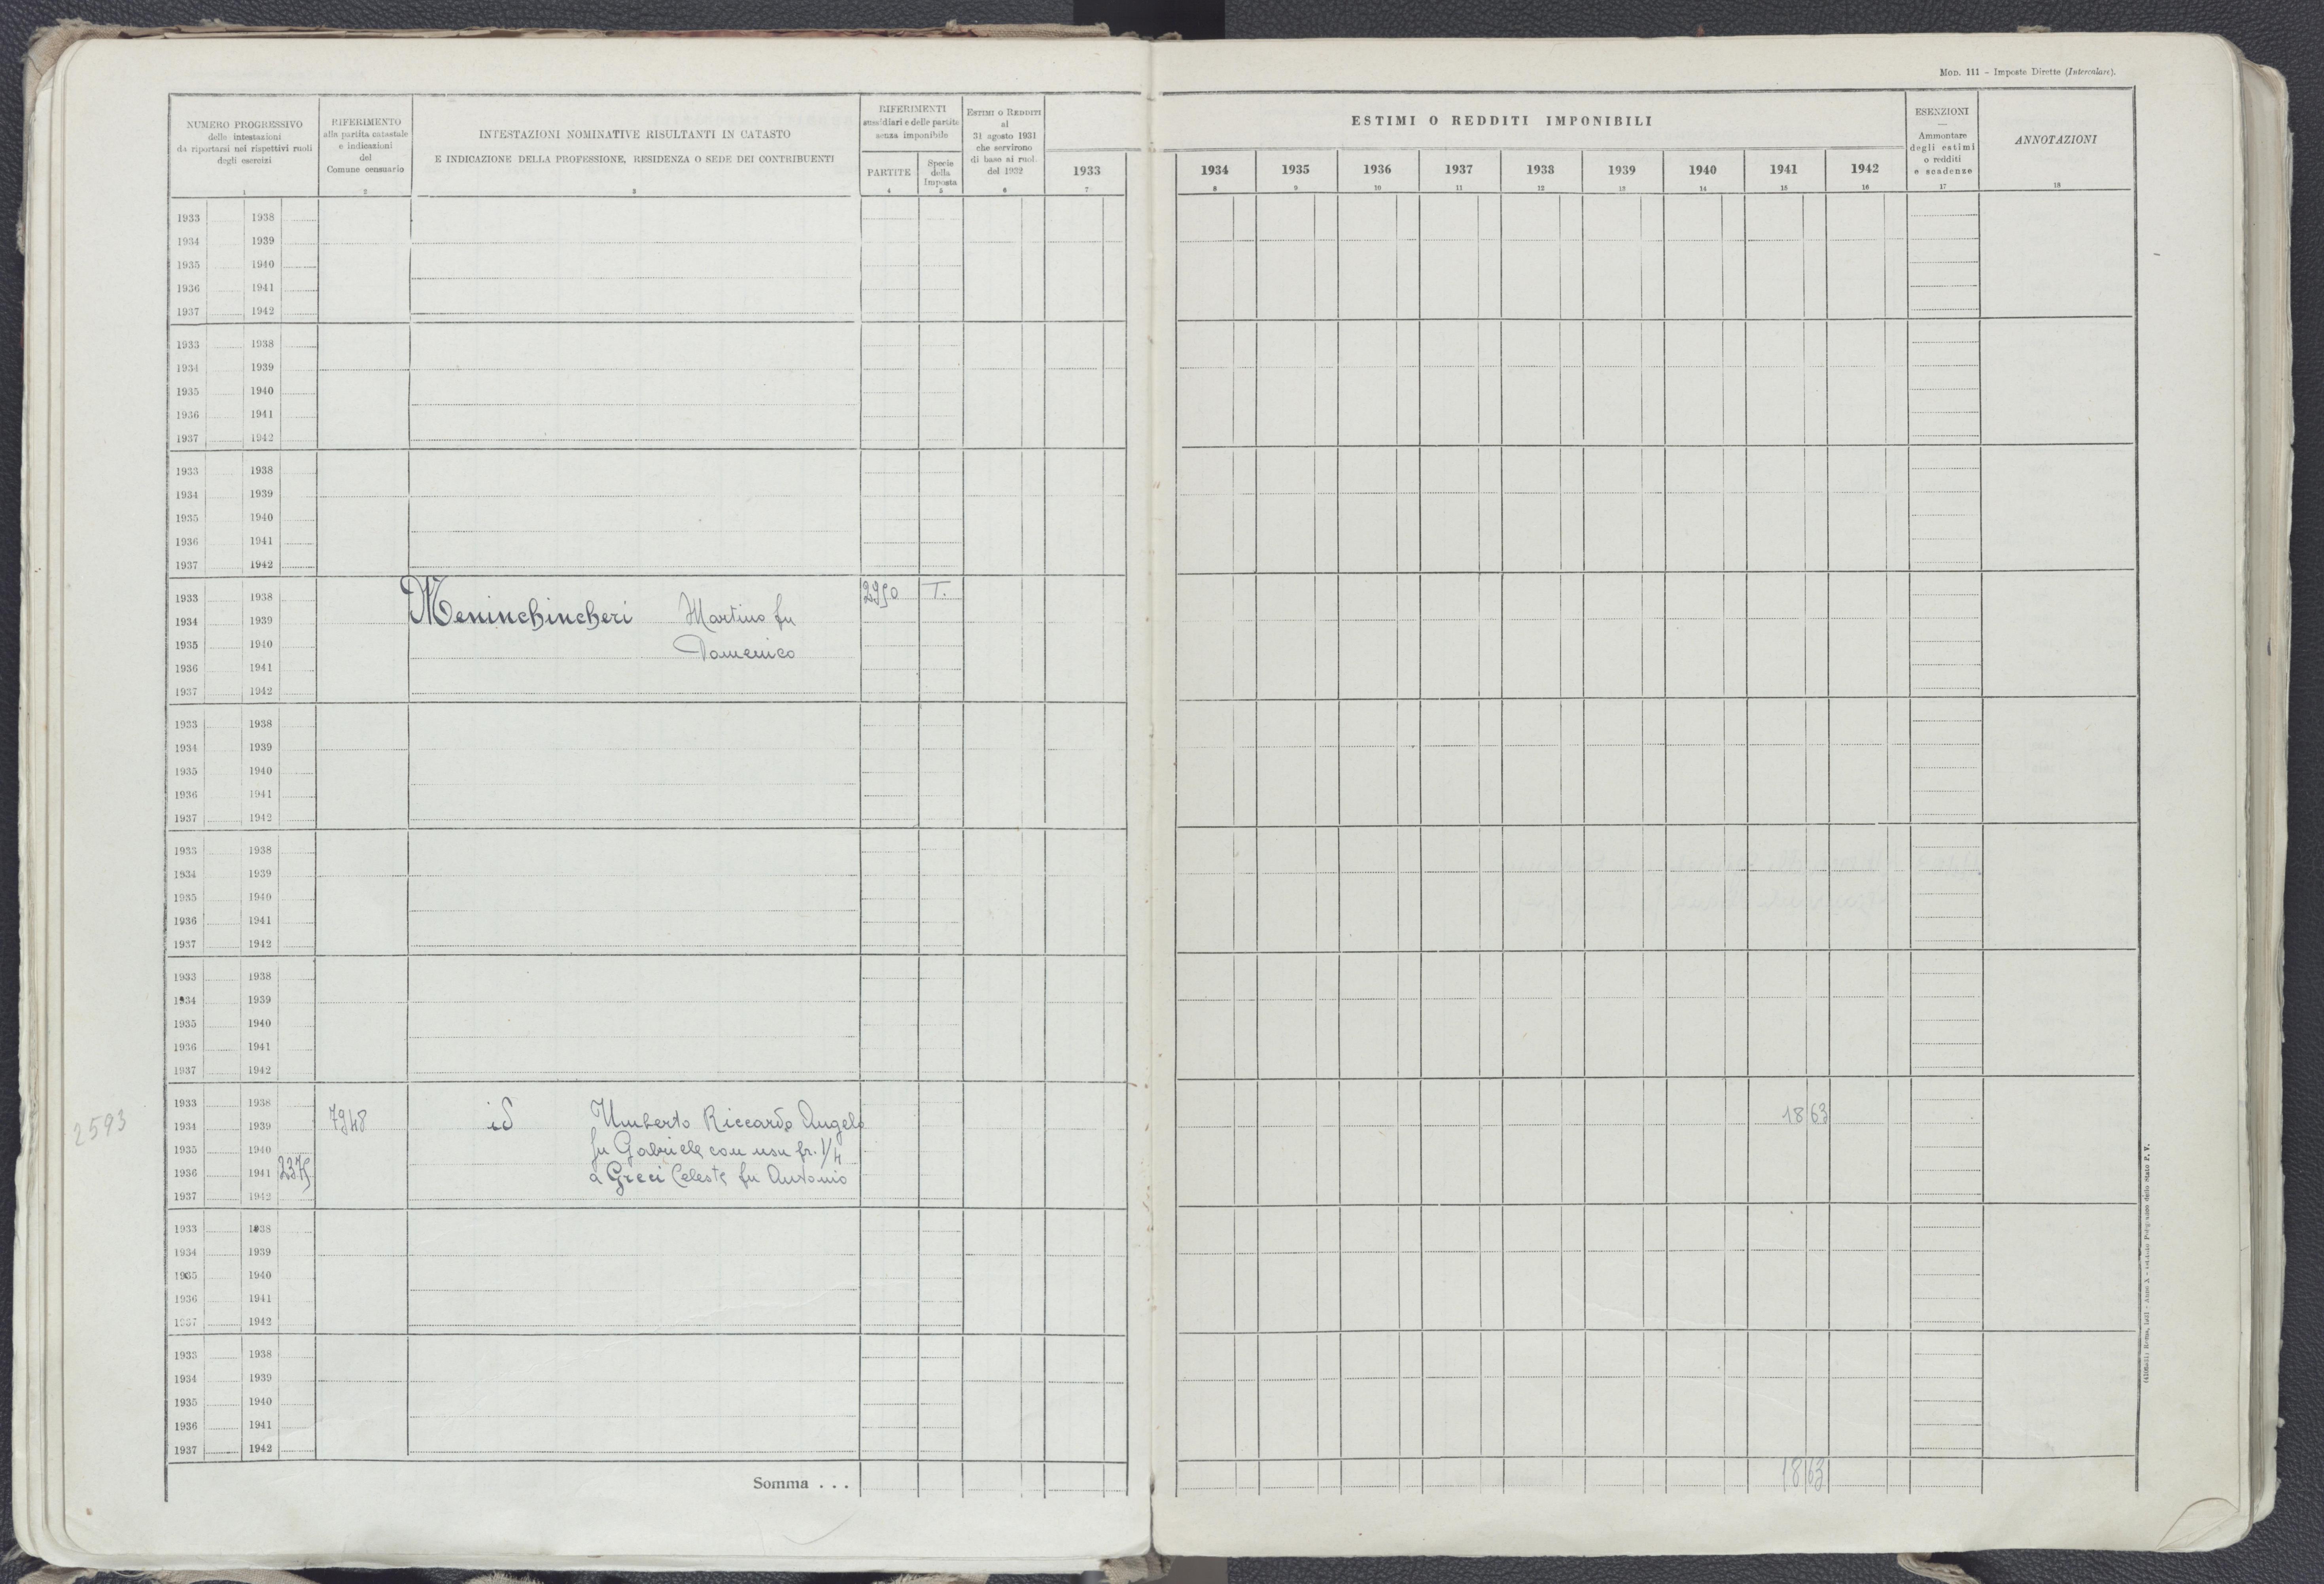 Mod. 111 - Imposte Dirette (Intercalare).
NUMERO PROGRESSIVO
delle intestazioni
da riportarsi nei rispettivi ruoli
degli esercizi
1
RIFERIMENTO
alla partita catastale
e indicazioni
del
Comune censuario
2
INTESTAZIONI NOMINATIVE RISULTANTI IN CATASTO
E INDICAZIONE DELLA PROFESSIONE, RESIDENZA O SEDE DEI CONTRIBUENTI
3
RIFERIMENTI
sussidiari e delle partite
senza imponibile
PARTITE
4
Specie
della
Imposta
5
ESTIMI O REDDITI
al
31 agosto 1931
che servirono
di base ai ruoli
del 1932
6
1933
7
ESTIMI O REDDITI IMPONIBILI
1934 1935 1936 1937 1938 1939 1940 1941 1942
8 9 10 11 12 13 14 15 16
ESENZIONI
—
Ammontare
degli estimi
o redditi
e scadenze
17
ANNOTAZIONI
18
1933 1938
1934 1939
1935 1940
1936 1941
1937 1942
1933 1938
1934 1939
1935 1940
1936 1941
1937 1942
1933 1938
1934 1939
1935 1940
1936 1941
1937 1942
1933 1938 2950 T.
1934 1939 Meninchincheri Martino fu
1935 1940 Domenico
1936 1941
1937 1942
1933 1938
1934 1939
1935 1940
1936 1941
1937 1942
1933 1938
1934 1939
1935 1940
1936 1941
1937 1942
1933 1938
1934 1939
1935 1940
1936 1941
1937 1942
1933 1938
2593 1934 1939 7948 id Umberto Riccardo Angelo 18 63
1935 1940 fu Gabriele con usu fr. 1/4
1936 1941 2375 a Greci Celeste fu Antonio
1937 1942
1933 1938
1934 1939
1935 1940
1936 1941
1937 1942
1933 1938
1934 1939
1935 1940
1936 1941
1937 1942
Somma . . . 18 63